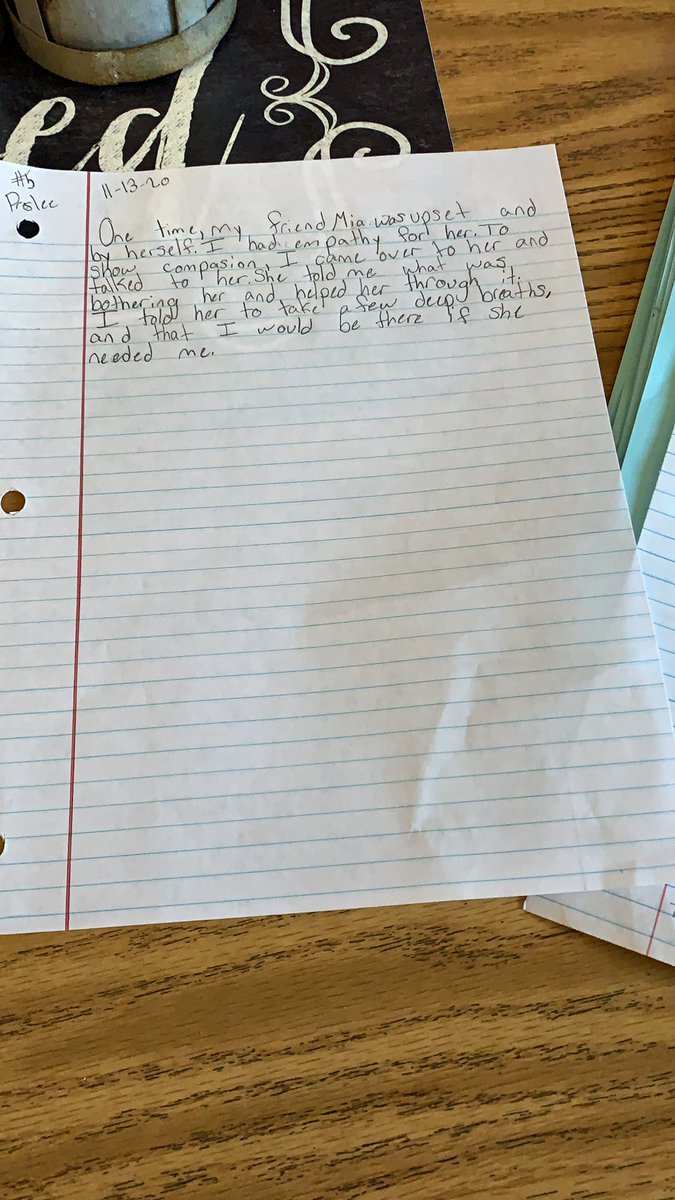 ed
#5
Prolec
11-13-20
One time, my friend Mia was upset and
by herself. I had empathy for her. To
show compasion I came over to her and
talked to her. She told me what was
bothering her and helped her through it.
I told her to take a few deepy breaths,
and that I would be there if she
needed me.